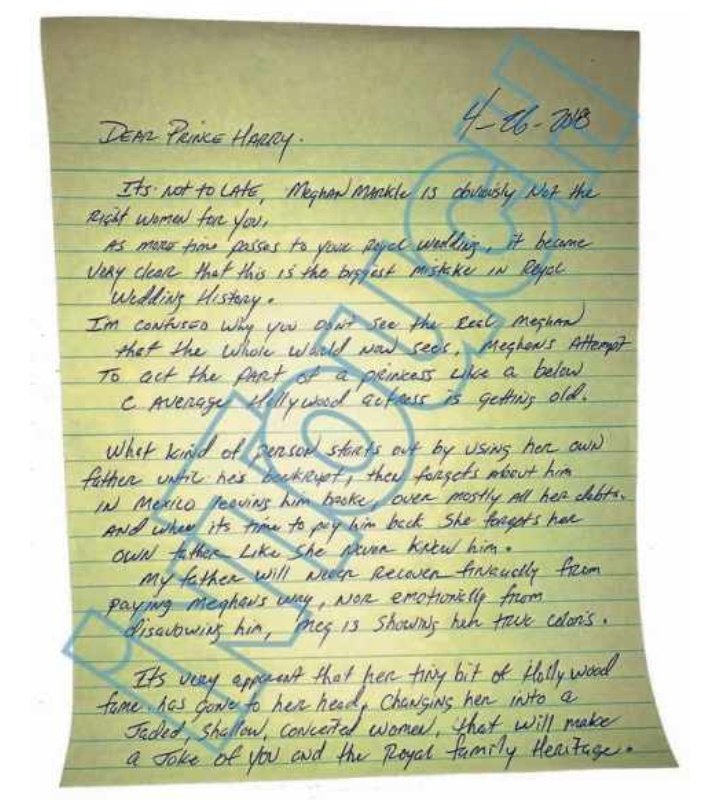 4-26-2018
DEAR PRINCE HARRY.
Its not to LATE, Meghan MARKle is obviously Not the
Right women for you,
As more time passes to your Royal wedding, it became
Very clear that this is the biggest mistake in Royal
Wedding History.
Im confused why you Don't see the Real Meghan
that the whole world Now sees. Meghan's Attempt
To act the part of a princess like a below
C Average Hollywood actress is getting old.
What kind of person starts out by using her own
father until he's bankrupt, then forgets about him
IN Mexico leaving him broke, over mostly All her debts.
AND when its time to pay him back She forgets her
OWN father Like She Never Knew him.
My father will Never Recover financially from
paying Meghans way, Nor emotionally from
disavowing him, Meg is Showing her true colors.
Its very apparent that her tiny bit of Hollywood
fame has gone to her head, Changing her into a
Jaded, Shallow, conceited women, that will make
a Joke of you and the Royal family Heritage.
InTouch